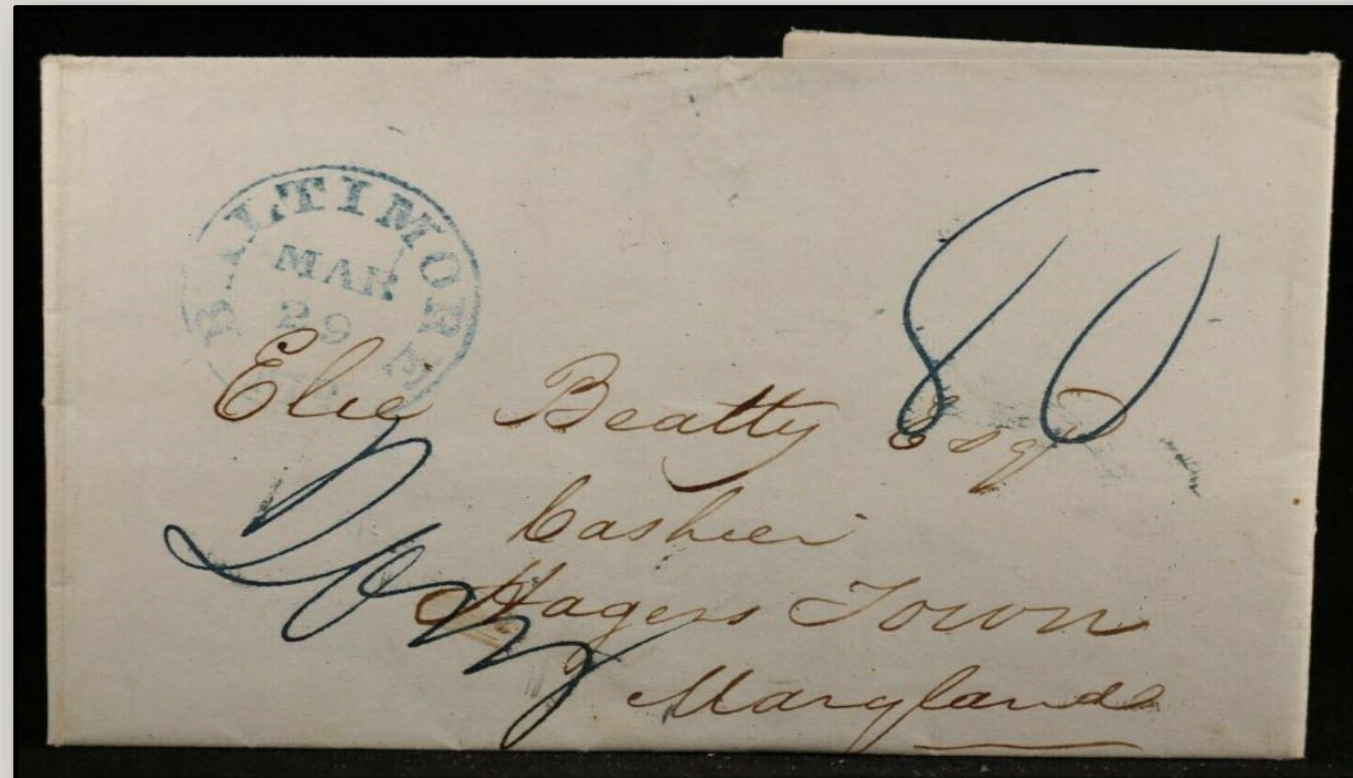 BALTIMORE
MAR
29
80
Elie Beatty Esqr
Cashier
Hagers Town
Maryland